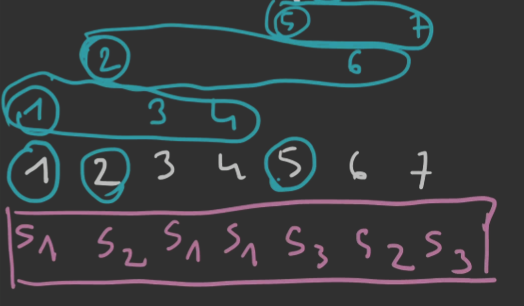 5 7
2 6
1 3 4
1 2 3 4 5 6 7
S1 S2 S1 S1 S3 S2 S3